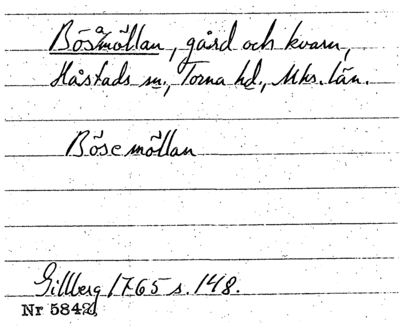 Bösamöllan, gård och kvarn,
Håstads sn., Torna hd., Mhs. län.
Bösemöllan
Gillberg 1765 s. 148.
Nr 5842